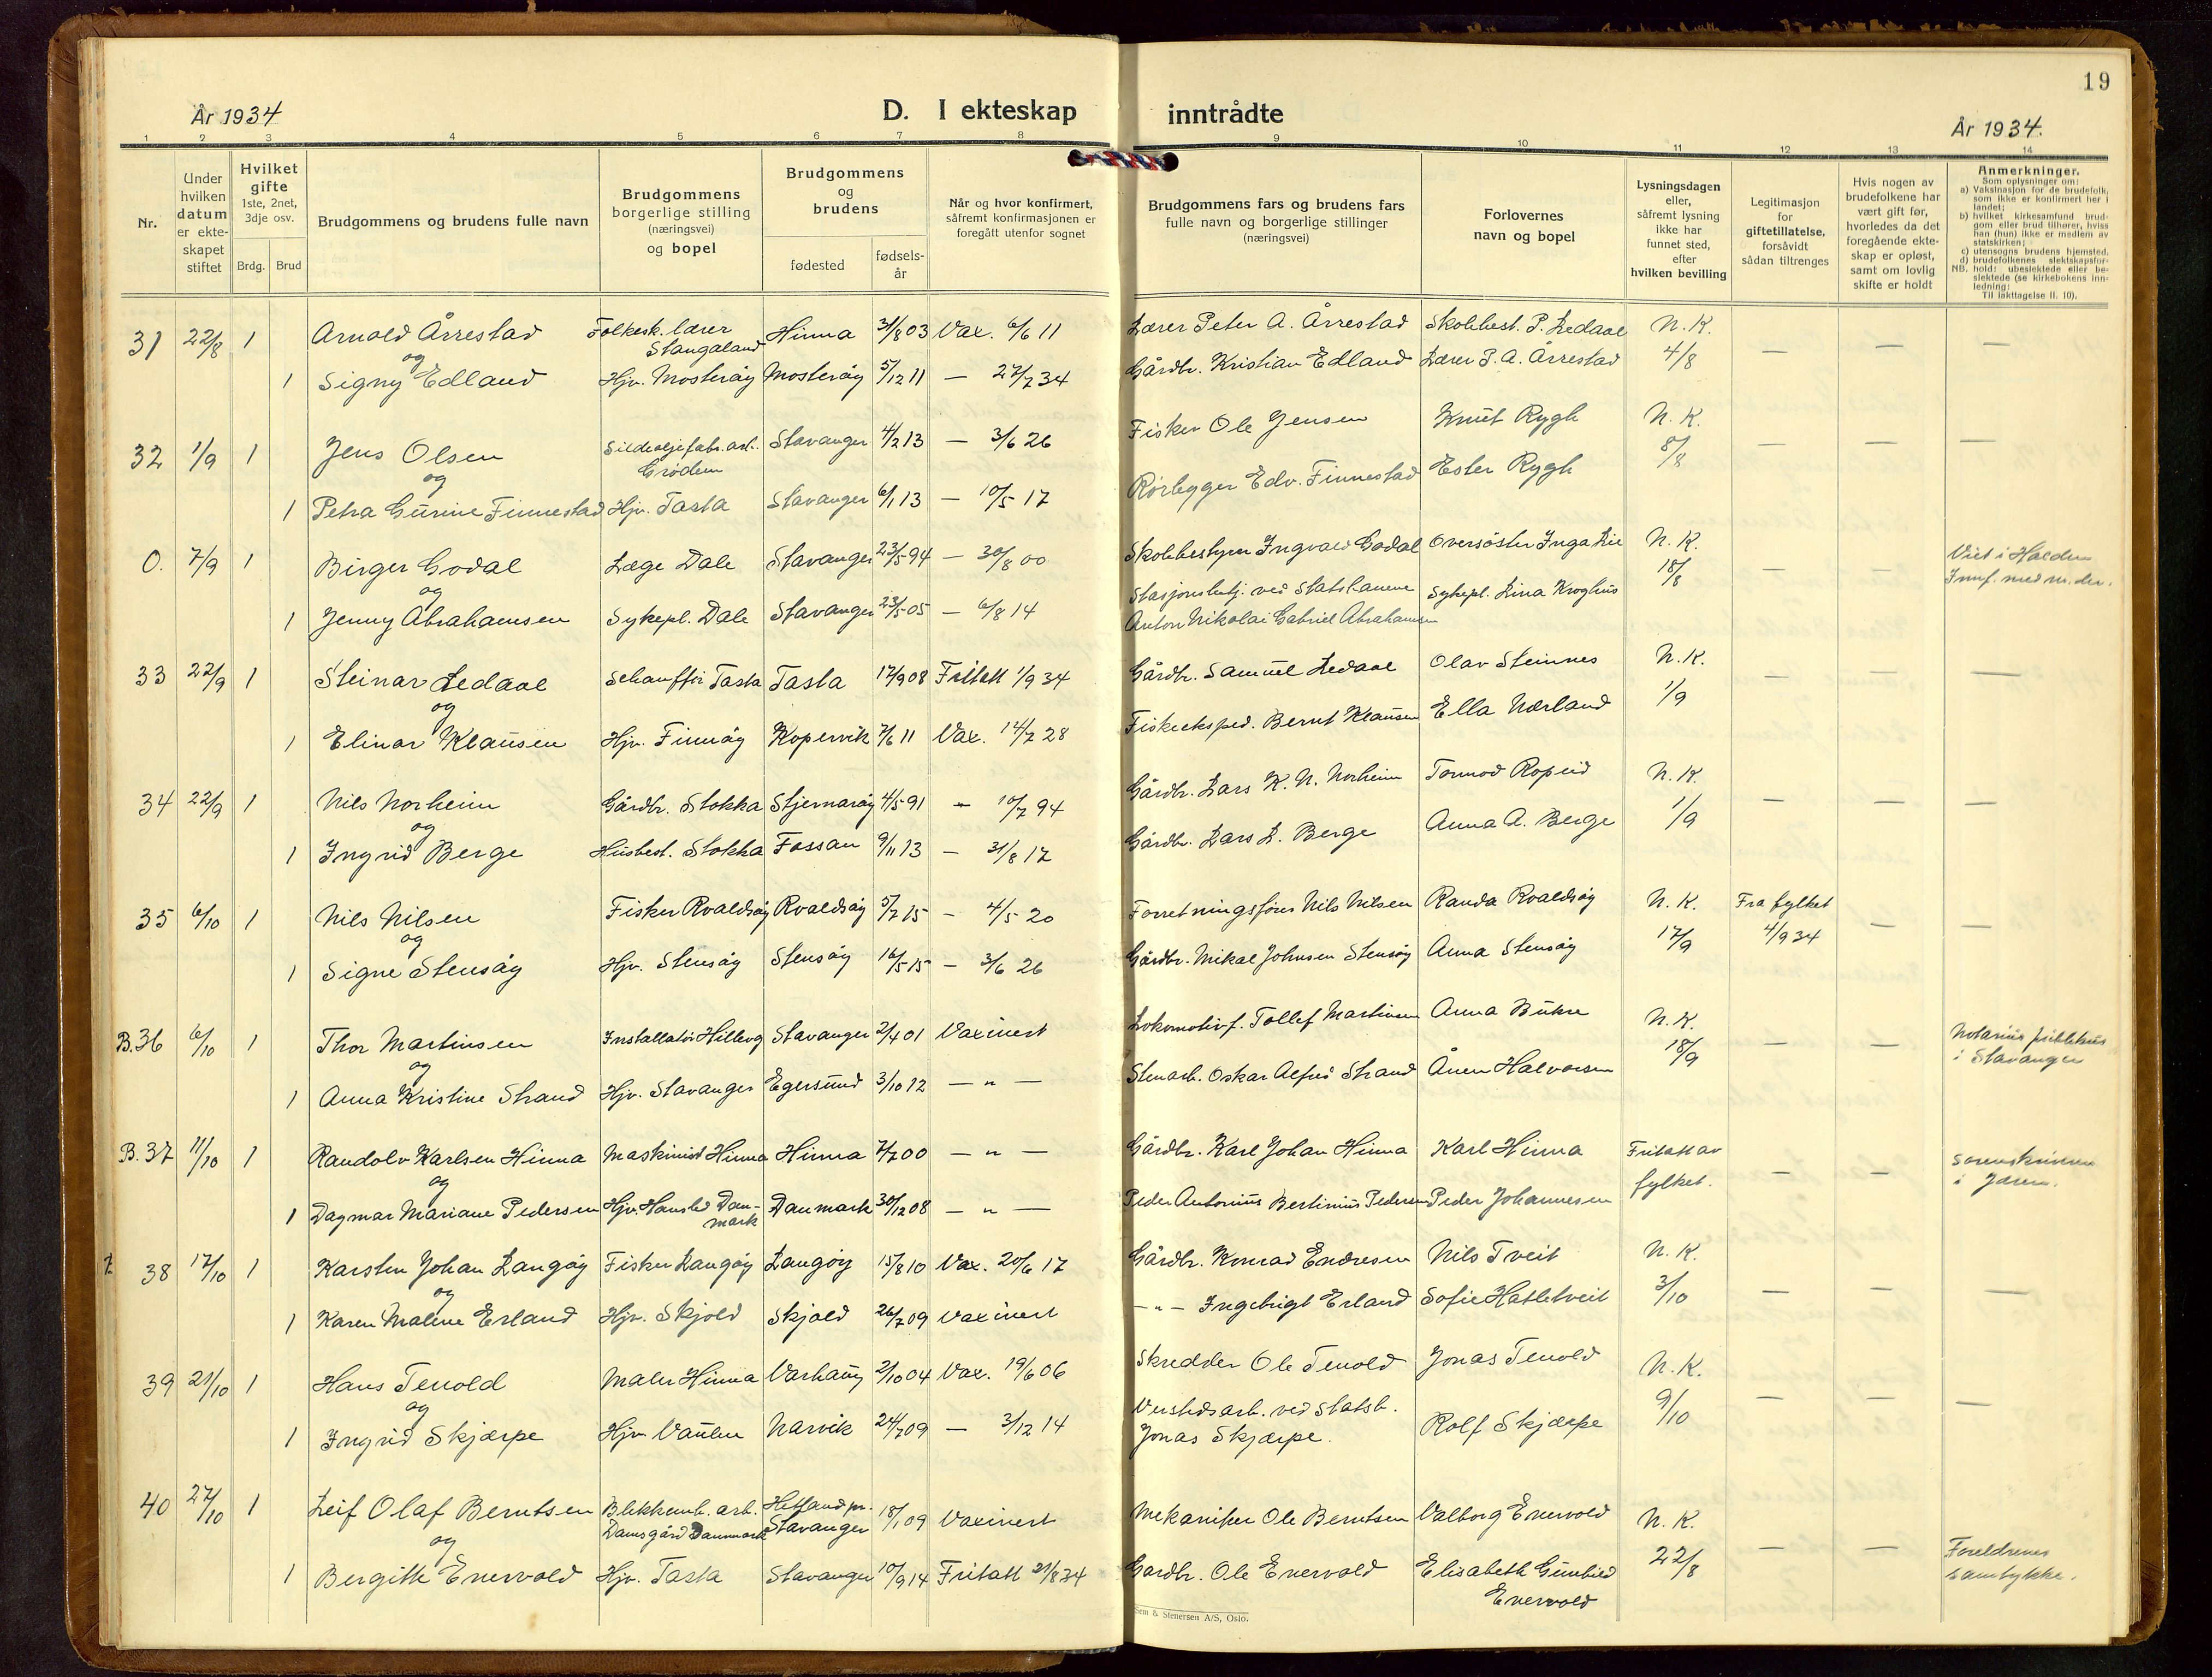 19
År 1934
D. I ekteskap inntrådte
År 1934.
1 2 3 4 5 6 7 8 9 10 11 12 13 14
Nr.
Under hvilken datum er ekte- skapet stiftet
Hvilket gifte 1ste, 2net, 3dje osv.
Brdg. Brud
Brudgommens og brudens fulle navn
Brudgommens borgerlige stilling (næringsvei) og bopel
Brudgommens og brudens
fødested
fødsels- år
Når og hvor konfirmert, såfremt konfirmasjonen er foregått utenfor sognet
Brudgommens fars og brudens fars fulle navn og borgerlige stillinger (næringsvei)
Forlovernes navn og bopel
Lysningsdagen eller, såfremt lysning ikke har funnet sted, efter hvilken bevilling
Legitimasjon for giftetillatelse, forsåvidt sådan tiltrenges
Hvis nogen av brudefolkene har vært gift før, hvorledes da det foregående ekte- skap er opløst, samt om lovlig skifte er holdt
Anmerkninger.
Som oplysninger om:
a) Vaksinasjon for de brudefolk, som ikke er konfirmert her i landet;
b) hvilket kirkesamfund brud- gom eller brud tilhører, hviss han (hun) ikke er medlem av statskirken;
c) utensogns brudens hjemsted.
d) brudefolkenes slektskapsfor- hold: ubeslektede eller be- slektede (se kirkebokens inn- ledning:
NB. Til iakttagelse II. 10).
31 22/8 1 Arnold Årrestad Folkesk.lærer Stangaland Hinna 31/8 03 Vax. 6/6 11 Lærer Peter A. Årrestad Skolebest. P. Ledaal N. K. — — —
og
1 Signy Edland Hjv. Mosterøy Mosterøy 5/12 11 — 27/7 34 Gårdbr. Kristian Edland Lærer P. A. Årrestad 4/8
32 1/9 1 Jens Olsen Sildoljefabr.arb. Grødem Stavanger 4/2 13 — 3/6 26 Fisker Ole Jensen Knut Rygh N. K. — — —
og
1 Petra Gurine Finnestad Hjv. Tasta Stavanger 6/1 13 — 10/5 17 Rørlegger Edv. Finnestad Ester Rygh 8/8
0. 7/9 1 Birger Godal Læge Dale Stavanger 23/5 94 — 30/8 00 Skolebestyrer Ingvald Godal Oversøster Inga Lie N. K. — — Viet i Halden
og
1 Jenny Abrahamsen Sykepl. Dale Stavanger 23/5 05 — 6/8 14 Stasjonsbetj. ved Statsbanene Sykepl. Lina Kroghus 18/8
Anton Nikolai Gabriel Abrahamsen
33 22/9 1 Steinar Ledaal Schauffør Tasta Tasta 17/9 08 Fritatt 1/9 34 Gårdbr. Samuel Ledaal Olav Steinnes N. K. — — —
og
1 Elinar Klausen Hjv. Finnøy Kopervik 7/6 11 Vax. 14/7 28 Fiskeeksped. Bernt Klausen Ella Nærland 1/9
34 22/9 1 Nils Norheim Gårdbr. Stokka Stjernarøy 4/5 91 — 10/7 94 Gårdbr. Lars K. N. Norheim Tormod Ropeid N. K. — — —
og
1 Ingrid Berge Husbest. Stokka Fossan 9/11 13 — 31/8 17 Gårdbr. Lars L. Berge Anna A. Berge 1/9
35 6/10 1 Nils Nilsen Fisker Roaldsøy Roaldsøy 5/7 15 — 4/5 20 Forretningsfører Nils Nilsen Randa Roaldsøy N. K. Fra fylket — —
og
1 Signe Stensøy Hjv. Stensøy Stensøy 16/5 15 — 3/6 26 Gårdbr. Mikal Johnsen Stensøy Anna Stensøy 17/9 4/9 34
B.36 6/10 1 Thor Martinsen Installatør Hillevg Stavanger 2/4 01 Vaxinert Lokomotivf. Tollef Martinsen Anna Bukre N. K. — — Notarius publicus
og
1 Anna Kristine Strand Hjv. Stavanger Egersund 3/10 12 — " — Stenarb. Oskar Alfred Strand Ånen Halvorsen 18/9 i Stavanger
B.37 11/10 1 Randolv Karlsen Hinna Maskinist Hinna Hinna 7/7 00 — " — Gårdbr. Karl Johan Hinna Karl Hinna Fritatt av — — Sorenskriveren
og
1 Dagmar Mariane Pedersen Hjv. Hansted Dan- mark Danmark 30/12 08 — " — Peder Antonius Bertinius Pedersen Peder Johannesen fylket. i Jæren.
38 17/10 1 Karsten Johan Langøy Fisker Langøy Langøy 15/8 10 Vax. 20/6 17 Gårdbr. Konrad Endresen Nils Tveit N. K. — — —
og
1 Karen Maline Erland Hjv. Skjold Skjold 26/7 09 Vaxinert — " — Ingebrigt Erland Sofie Hatletveit 3/10
39 21/10 1 Hans Tenold Maler Hinna Varhaug 2/10 04 Vax. 19/6 06 Skredder Ole Tenold Jonas Tenold N. K. — — —
og
1 Ingrid Skjærpe Hjv. Vaulen Narvik 24/7 09 — 3/12 14 Verkstedsarb. ved Statsb. Rolf Skjærpe 9/10
Jonas Skjærpe.
40 27/10 1 Leif Olaf Berntsen Blikkemb. arb. Damsgård Danmark Hetland pr. Stavanger 18/1 09 Vaxinert Mekaniker Ole Berntsen Valborg Enervold N. K. — — Foreldrenes
og
1 Bergitte Enervold Hjv. Tasta Stavanger 10/9 14 Fritatt 21/8 34 Gardbr. Ole Enervold Elisabeth Gunhild Enervold 22/8 samtykke.
Sem & Stenersen A/S, Oslo.